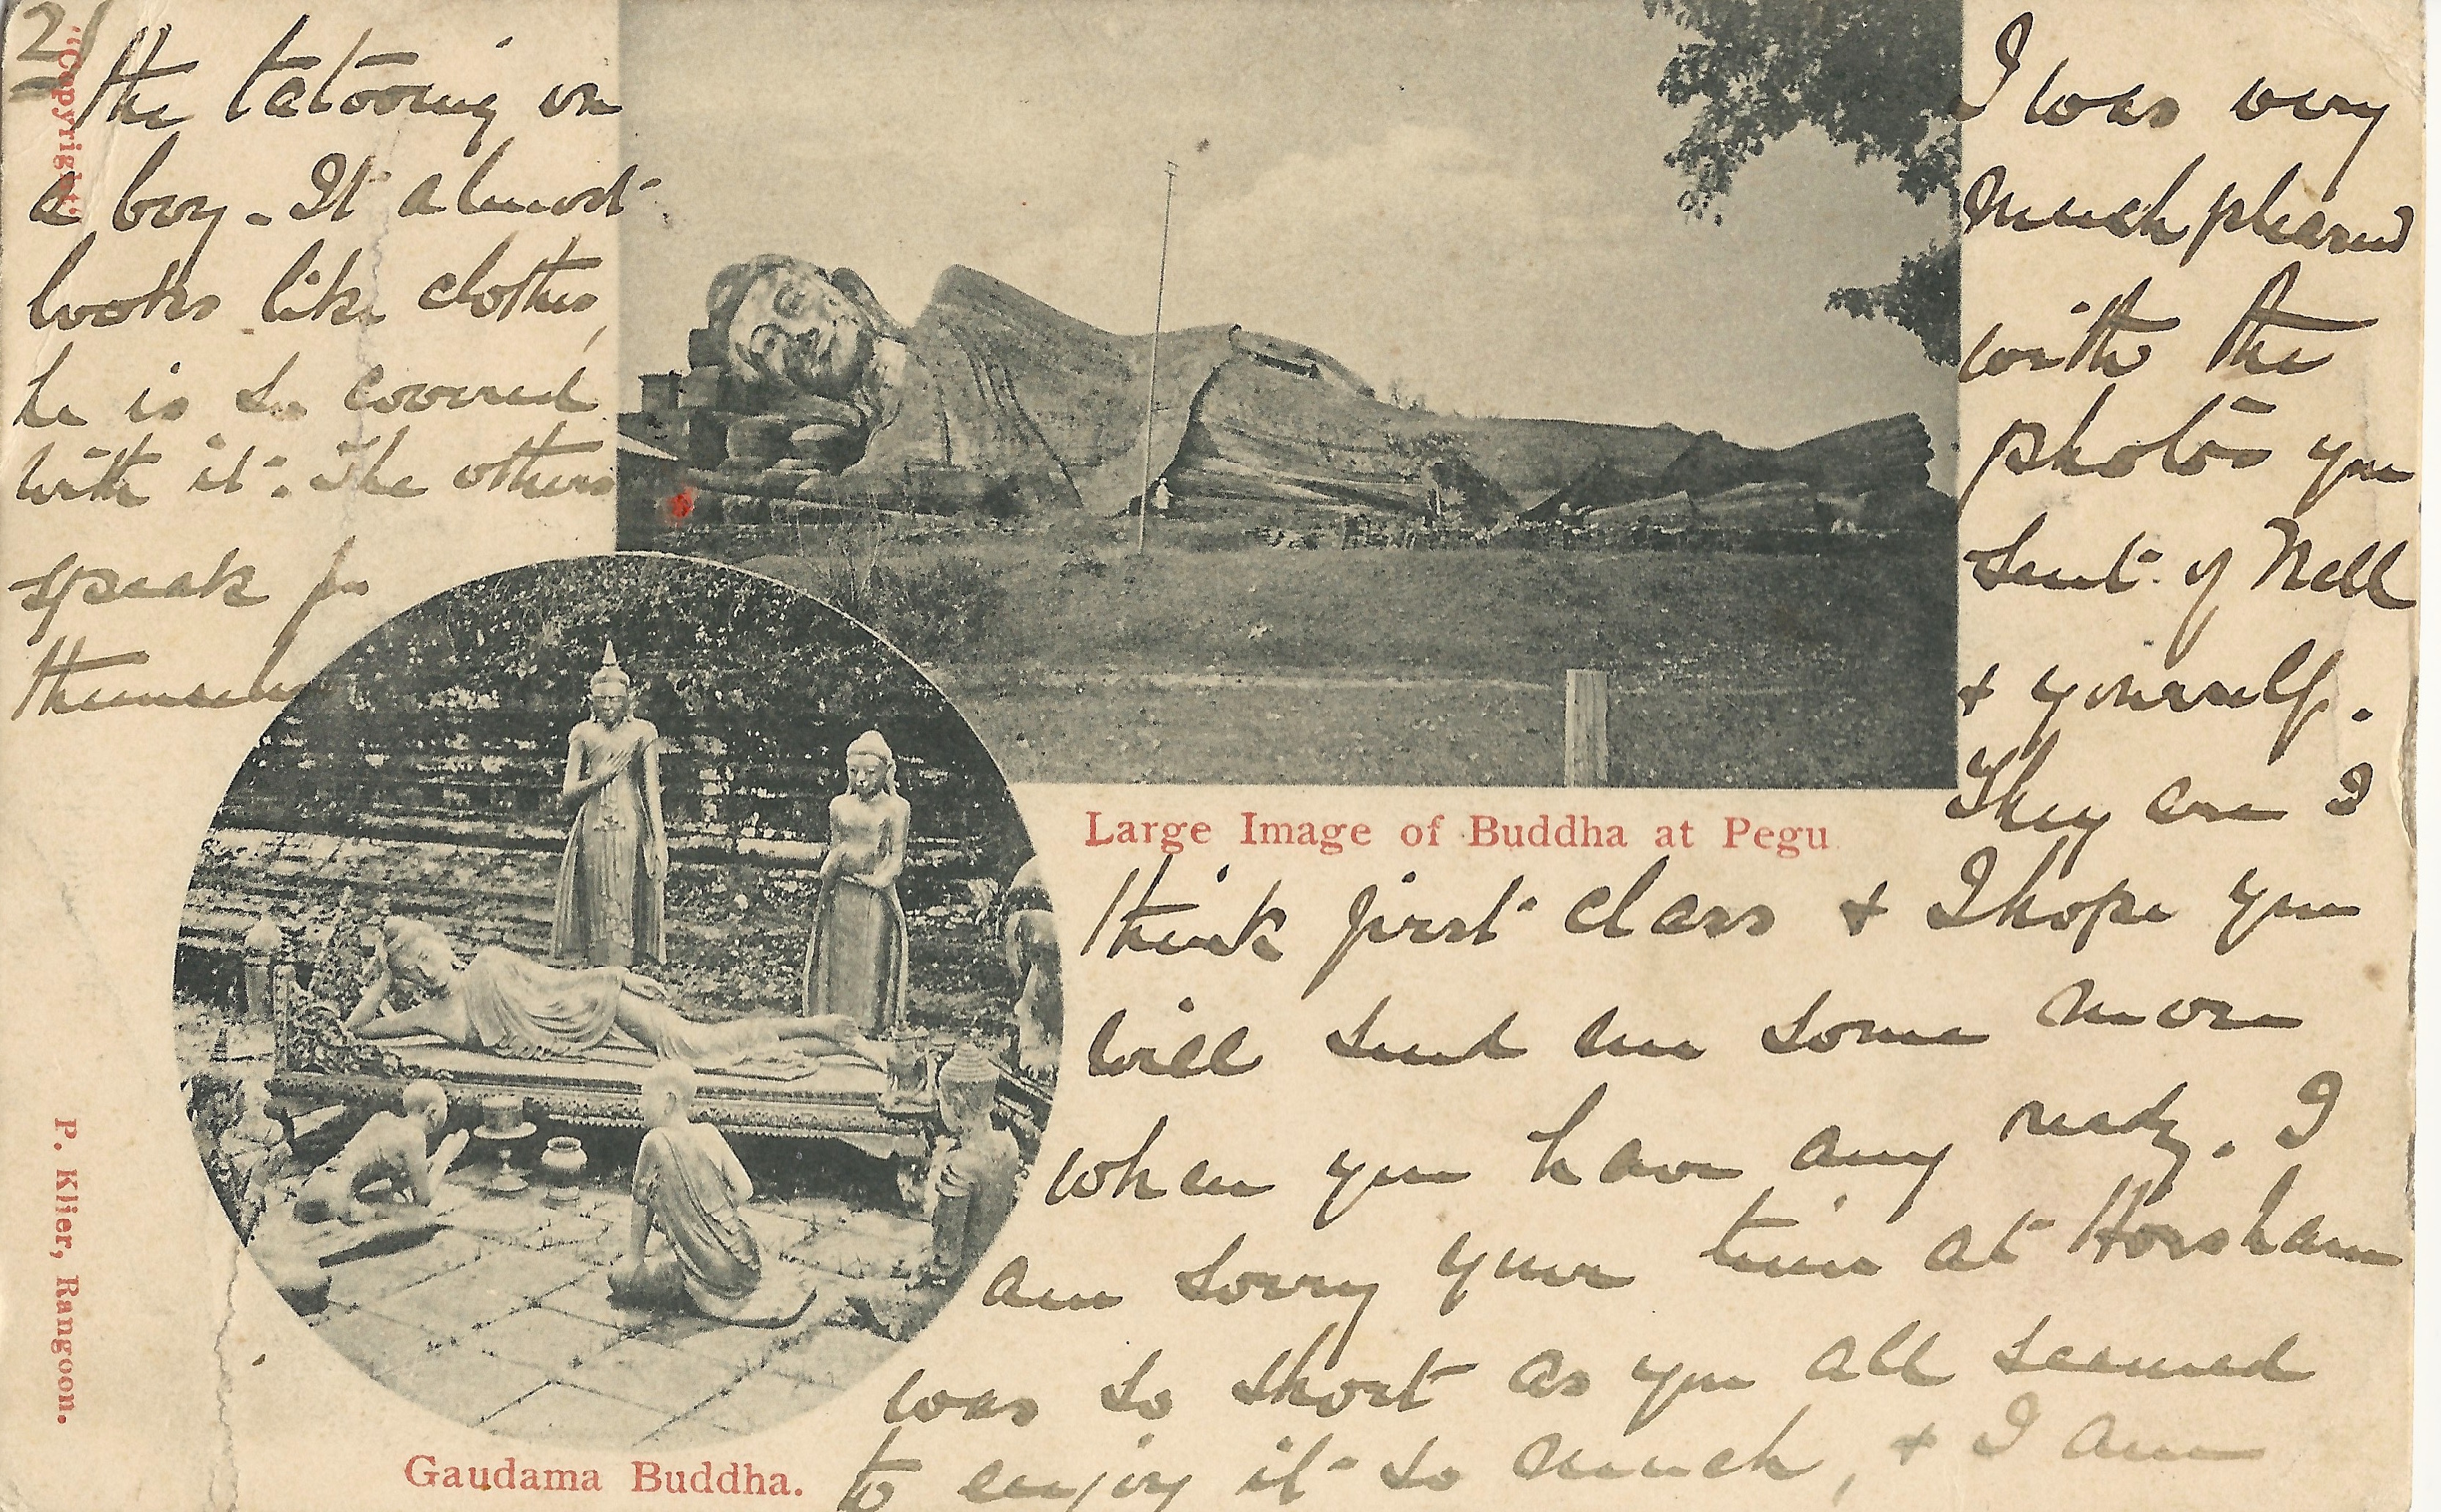 2/
"Copyright."
the tatooing on
a boy - It almost
looks like clothes,
he is so covered
with it. The others
speak for
themselves
I was very
much pleased
with the
photos you
sent of Nell
& yourself.
They are I
Large Image of Buddha at Pegu
think first class & I hope you
will send me some more
when you have any ready. I
am sorry your time at Horsham
was so short as you all seemed
to enjoy it so much, & I am
Gaudama Buddha.
P. Klier, Rangoon.